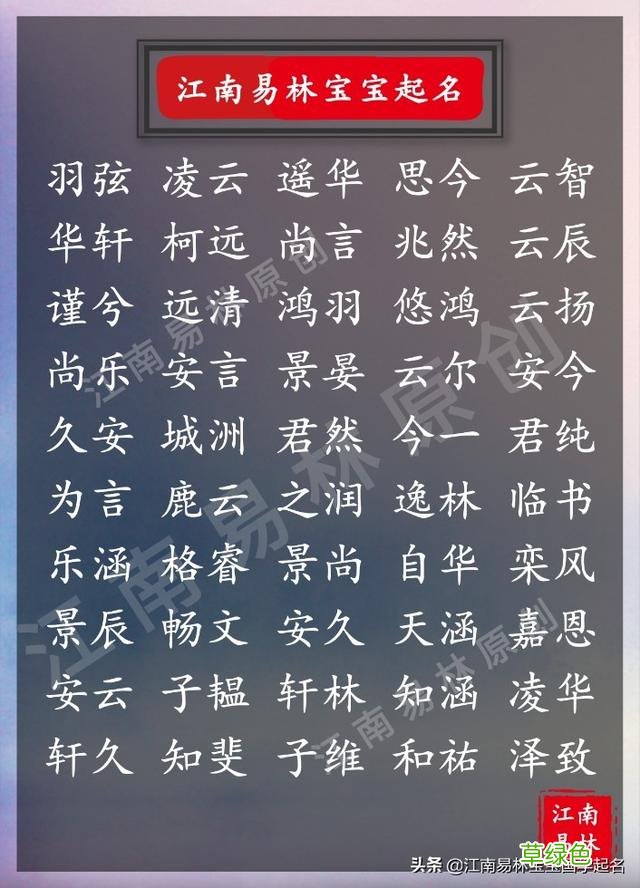 江南易林宝宝起名
羽弦 凌云 遥华 思今 云智
华轩 柯远 尚言 兆然 云辰
谨兮 远清 鸿羽 悠鸿 云扬
尚乐 安言 景晏 云尔 安今
久安 城洲 君然 今一 君纯
为言 鹿云 之润 逸林 临书
乐涵 格睿 景尚 自华 栾风
景辰 畅文 安久 天涵 嘉恩
安云 子韫 轩林 知涵 凌华
轩久 知斐 子维 和祐 泽致
江南易林原创
江南易林原创
江南易林原创
江南
易林
草绿色
头条 @江南易林宝宝国学起名